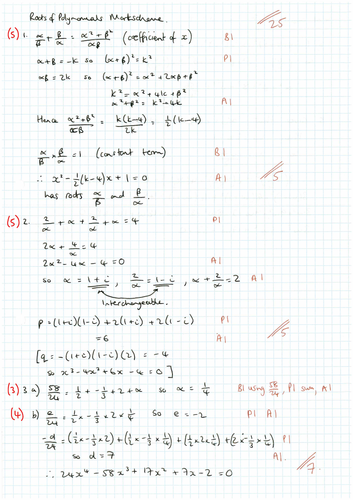 Roots of Polynomials Markscheme.
25
(5) 1. α/β + β/α = (α² + β²)/αβ (coefficient of x) B1
α+β = -k so (α+β)² = k² P1
αβ = 2k so (α+β)² = α² + 2αβ + β²
k² = α² + 4k + β²
α² + β² = k² - 4k A1
Hence (α² + β²)/αβ = k(k-4)/2k = ½(k-4)
α/β × β/α = 1 (constant term) B1
∴ x² - ½(k-4)x + 1 = 0 A1 /5
has roots α/β and β/α.
(5) 2. 2/α + α + 2/α + α = 4 P1
2α + 4/α = 4
2α² - 4α - 4 = 0 A1
so α = 1+i, 2/α = 1-i, α + 2/α = 2 A1
Interchangeable.
p = (1+i)(1-i) + 2(1+i) + 2(1-i) P1
= 6 A1 /5
[q = -(1+i)(1-i)(2) = -4
so x³ - 4x² + 6x - 4 = 0]
(3) 3 a) 58/24 = ½ + -⅓ + 2 + α so α = ¼ B1 using 58/24, P1 sum, A1
(4) b) e/24 = ½ × -⅓ × 2 × ¼ so e = -2 P1 A1
-d/24 = (½ × -⅓ × 2) + (½ × -⅓ × ¼) + (½ × 2 × ¼) + (2 × -⅓ × ¼) P1
so d = 7 A1.
∴ 24x⁴ - 58x³ + 17x² + 7x - 2 = 0 /7.